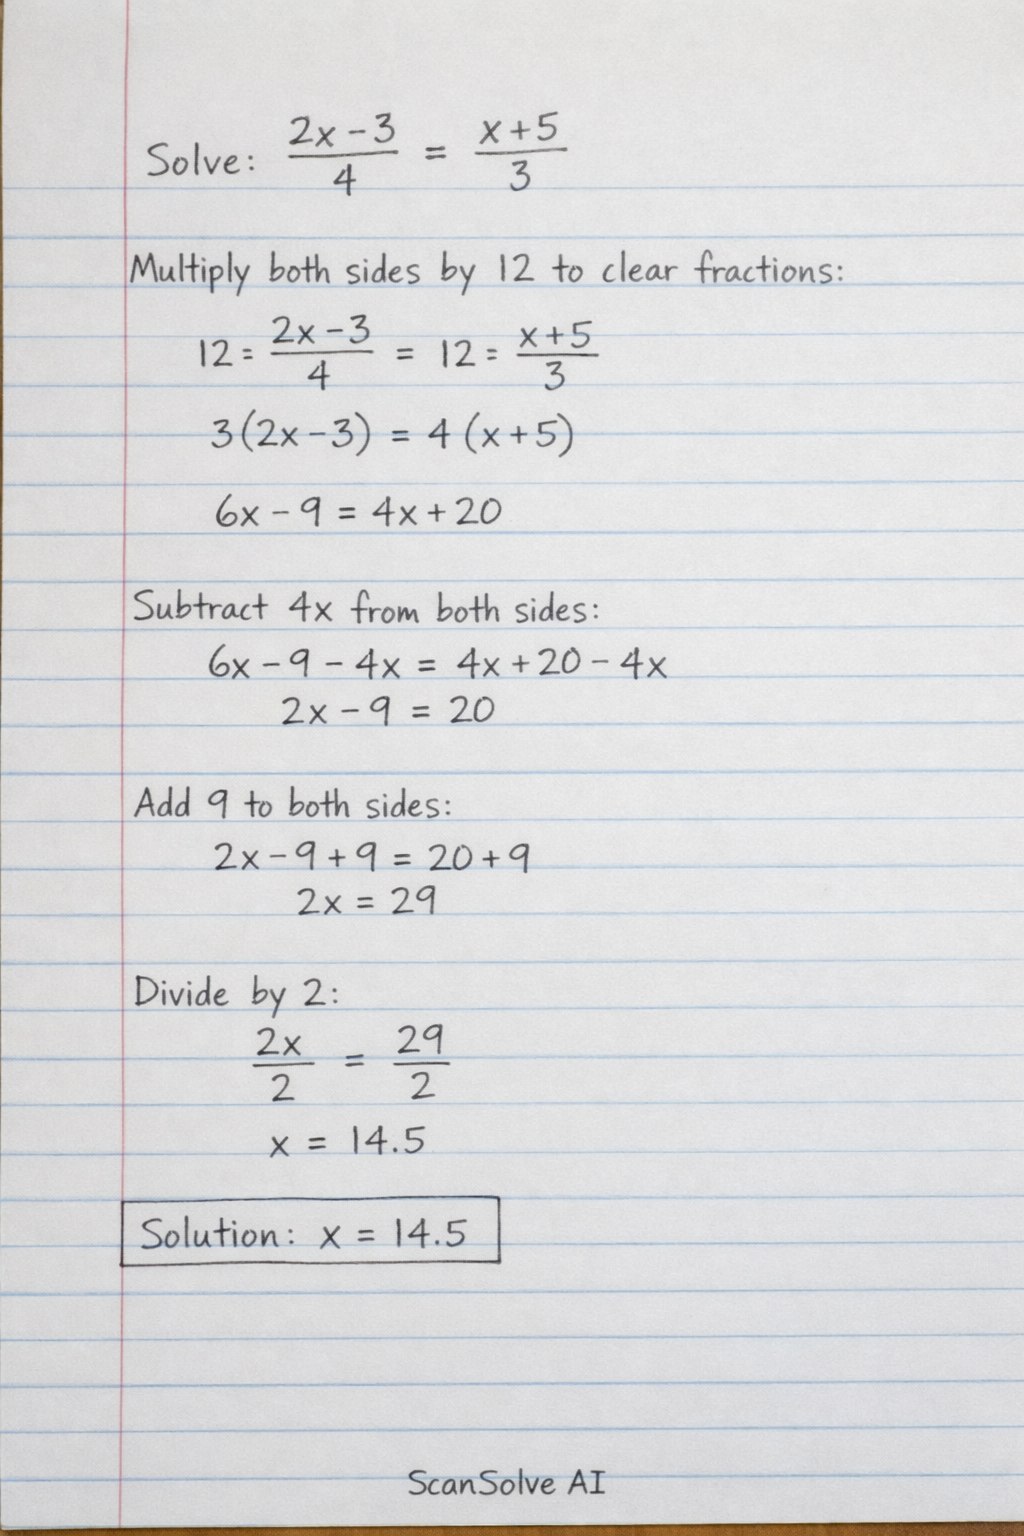 Solve: (2x-3)/4 = (x+5)/3
Multiply both sides by 12 to clear fractions:
12 = (2x-3)/4 = 12 = (x+5)/3
3(2x-3) = 4(x+5)
6x - 9 = 4x + 20
Subtract 4x from both sides:
6x - 9 - 4x = 4x + 20 - 4x
2x - 9 = 20
Add 9 to both sides:
2x - 9 + 9 = 20 + 9
2x = 29
Divide by 2:
2x/2 = 29/2
x = 14.5
Solution: x = 14.5
ScanSolve AI